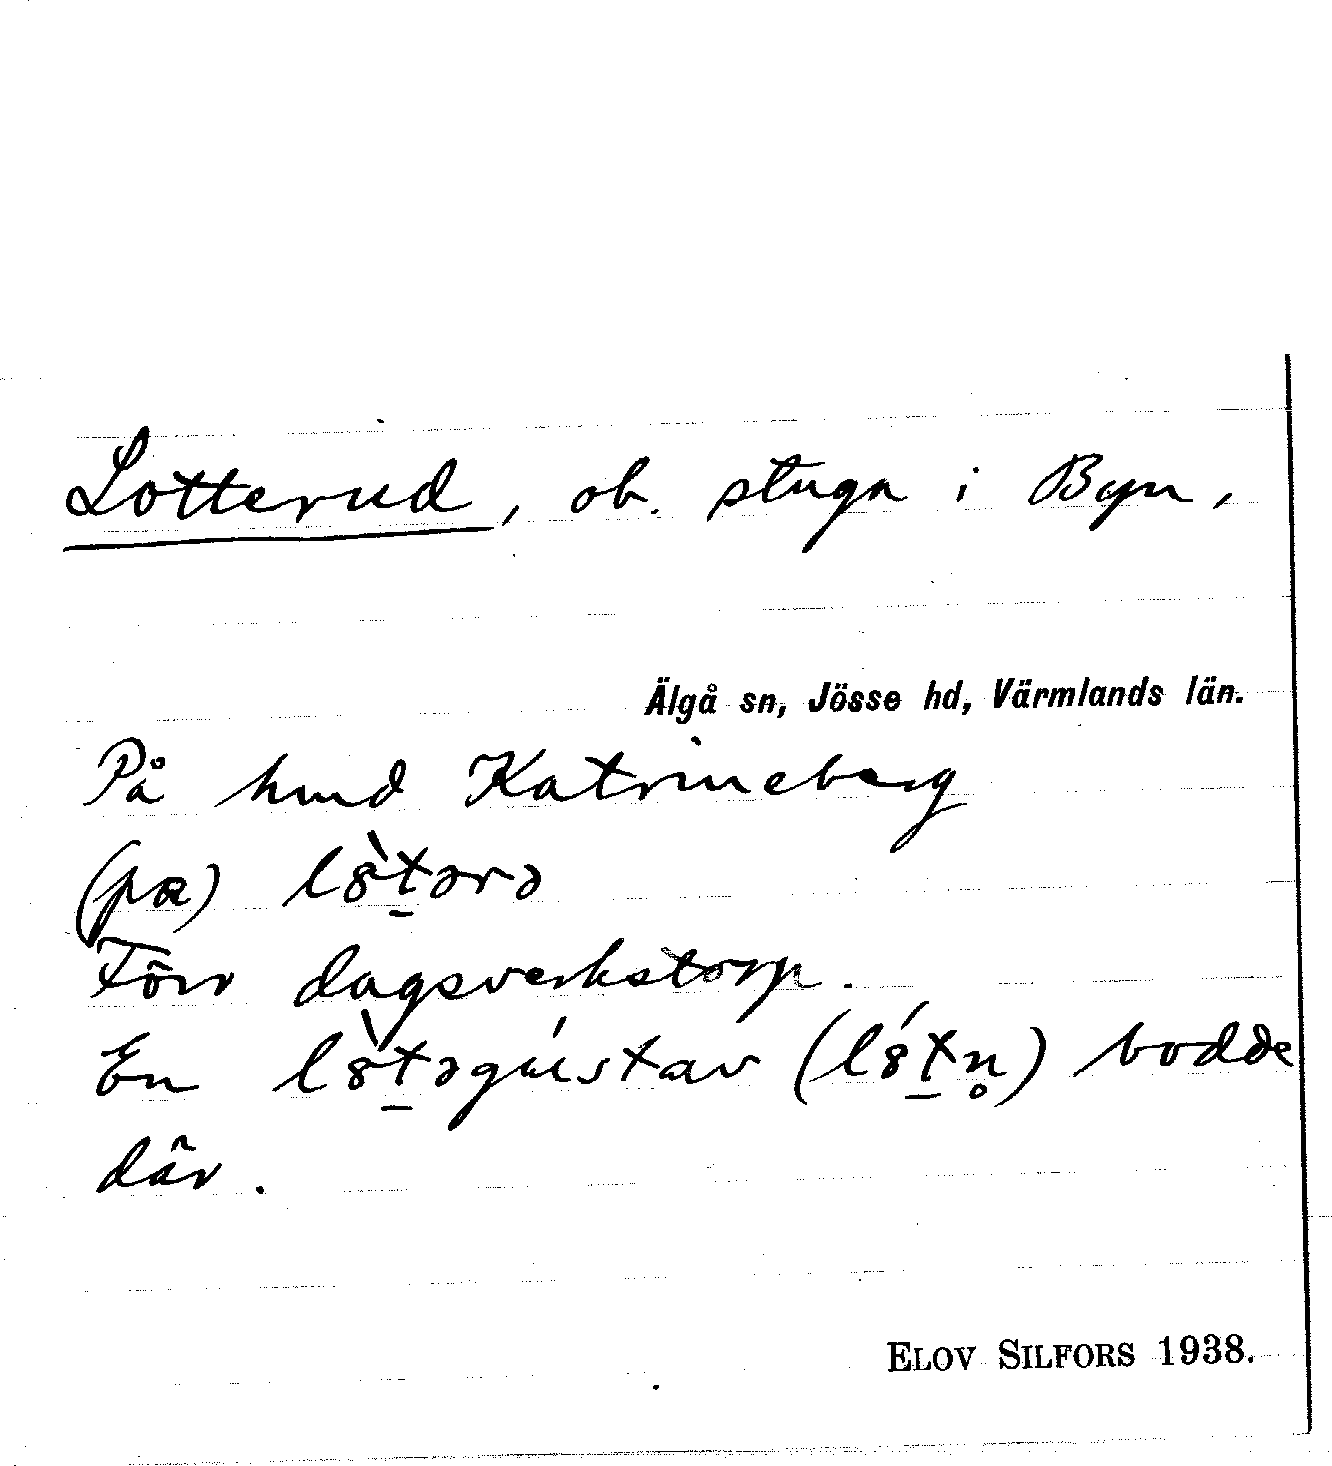 Lotterud, ob. stuga i Byn,
Älgå sn, Jösse hd, Värmlands län.
På hmd Katrineberg
(pa) l8̀t̠ərə
Förr dagsverkstorp.
En l8̀t̠əgústav (l8́t̠n̥) bodde
där.
ELOV SILFORS 1938.